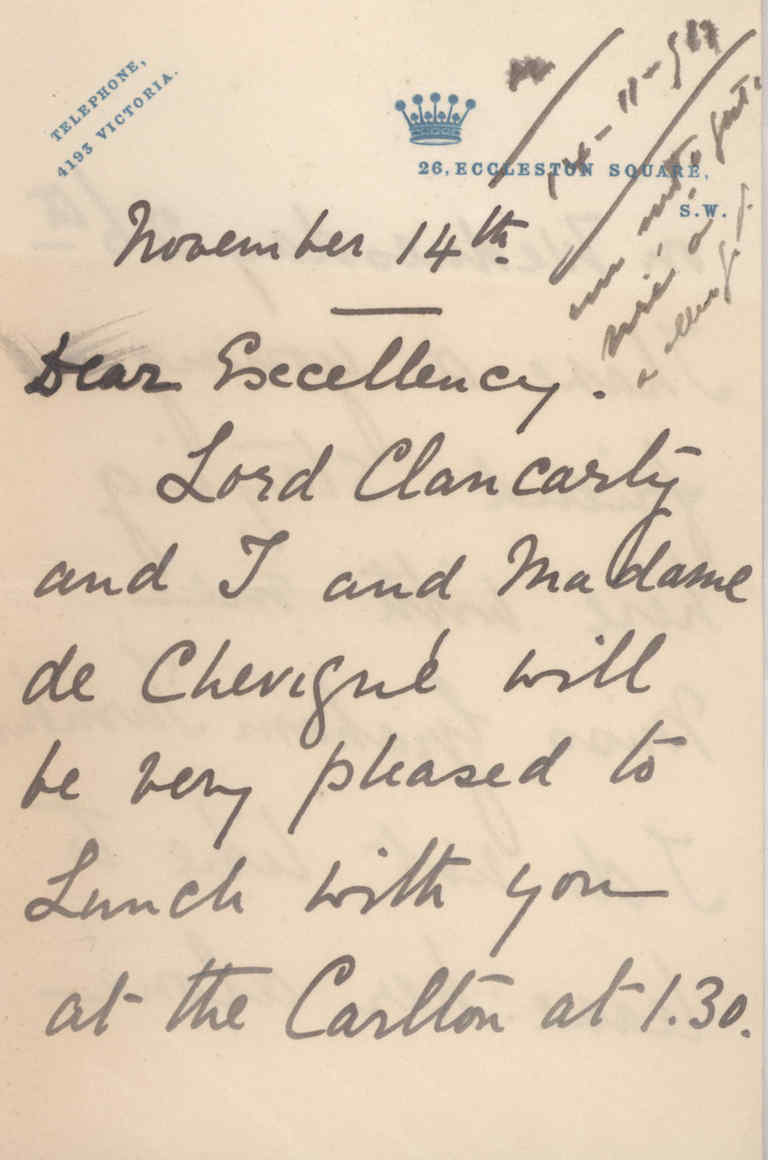 TELEPHONE,
4193 VICTORIA.
26, ECCLESTON SQUARE,
S.W.
November 14th.
Dear Excellency.
Lord Clancarty
and I and Madame
de Chevigné will
be very pleased to
Lunch with you
at the Carlton at 1.30.